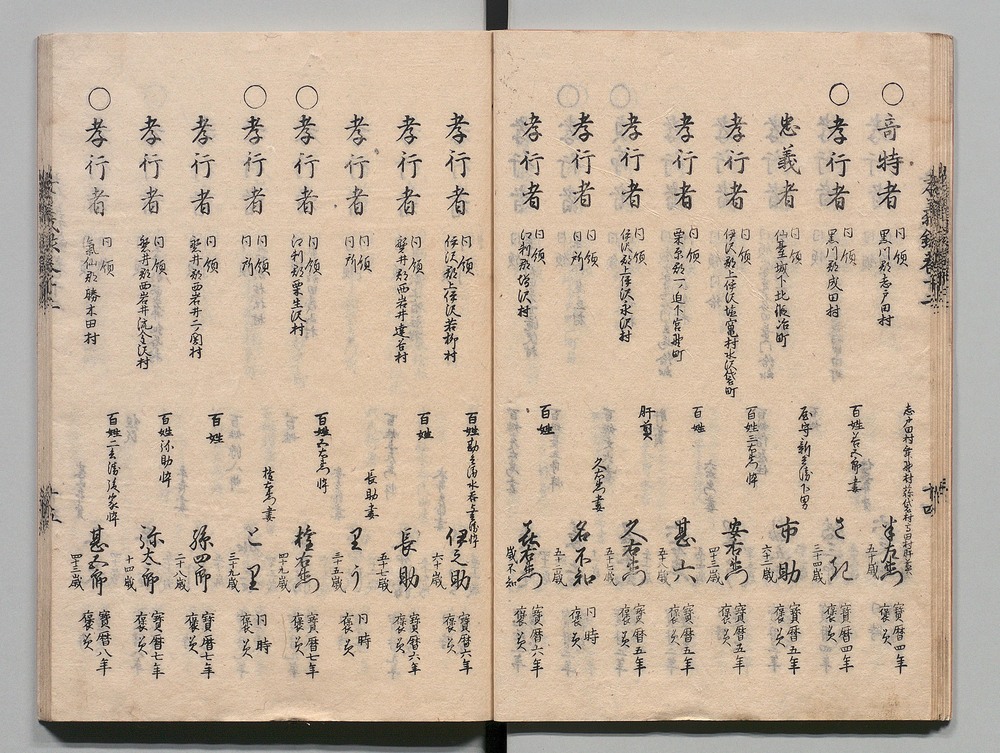 ○奇特者
同領
黒川郡志戸田村
五十歳
寳暦四年
褒美
○孝行者
同領
黒川郡成田村
百姓
妻
三十四歳
寳暦四年
褒美
忠義者
同領
仙臺城下北鍛冶町
市助
六十二歳
寳暦五年
褒美
孝行者
同領
伊沢郡上伊沢塩竃村水沢袋町
百姓三右衛門忰
安右衛門
四十三歳
寳暦五年
褒美
孝行者
同領
栗原郡一迫下宮野町
百姓
甚六
五十八歳
寳暦五年
褒美
○孝行者
同領
伊沢郡上伊沢永沢村
肝煎
久右衛門
五十七歳
寳暦五年
褒美
○孝行者
同領
同所
久右衛門妻
名不知
五十二歳
同時
褒美
孝行者
同領
江刺郡増沢村
百姓
歳不知
寳暦六年
褒美
孝行者
同領
伊沢郡上伊沢若柳村
伊之助
六十歳
寳暦六年
褒美
孝行者
同領
磐井郡西岩井達谷村
百姓
長助
五十七歳
寳暦六年
褒美
孝行者
同領
同所
長助妻
里う
三十五歳
同時
褒美
○孝行者
同領
江刺郡栗生沢村
百姓五右衛門忰
権右衛門
四十九歳
寳暦七年
褒美
○孝行者
同領
同所
権右衛門妻
と里
三十九歳
同時
褒美
孝行者
同領
磐井郡西岩井二関村
百姓
孫四郎
二十八歳
寳暦七年
褒美
孝行者
同領
磐井郡西岩井流金沢村
百姓弥助忰
弥太郎
十四歳
寳暦七年
褒美
○孝行者
同領
氣仙郡勝木田村
甚五郎
四十三歳
寳暦八年
褒美